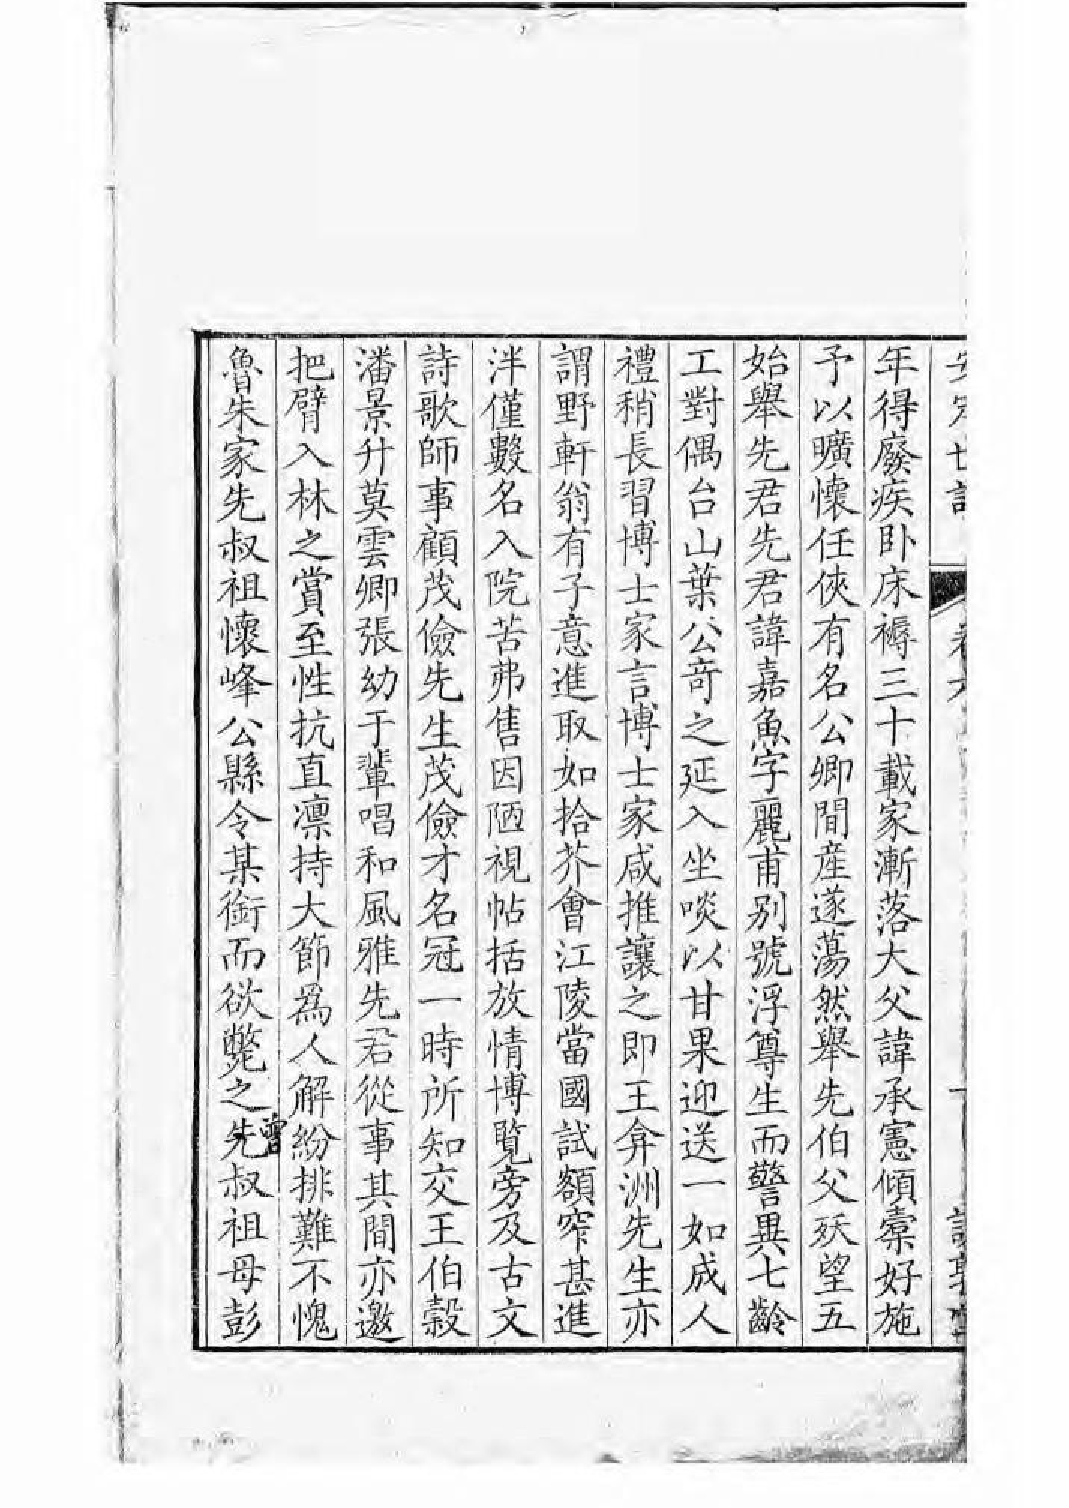 年得廢疾卧床褥三十載家漸落大父諱承憲傾橐好施
予以曠懷任俠有名公卿間産遂蕩然舉先伯父殀望五
始舉先君先君諱嘉魚字麗甫别號浮尊生而警異七齡
工對偶台山葉公竒之延入坐啖以甘果迎送一如成人
禮稍長習博士家言博士家咸推讓之即王弇洲先生亦
謂野軒翁有子意進取如拾芥會江陵當國試額窄甚進
泮僅數名入院苦弗售因陋視帖括放情博覽旁及古文
詩歌師事顧茂儉先生茂儉才名冠一時所知交王伯穀
潘景升莫雲卿張幼于輩唱和風雅先君從事其間亦邀
把臂入林之賞至性抗直凛持大節爲人解紛排難不愧
魯朱家先叔祖懷峰公縣令某銜而欲斃之先曾叔祖母彭